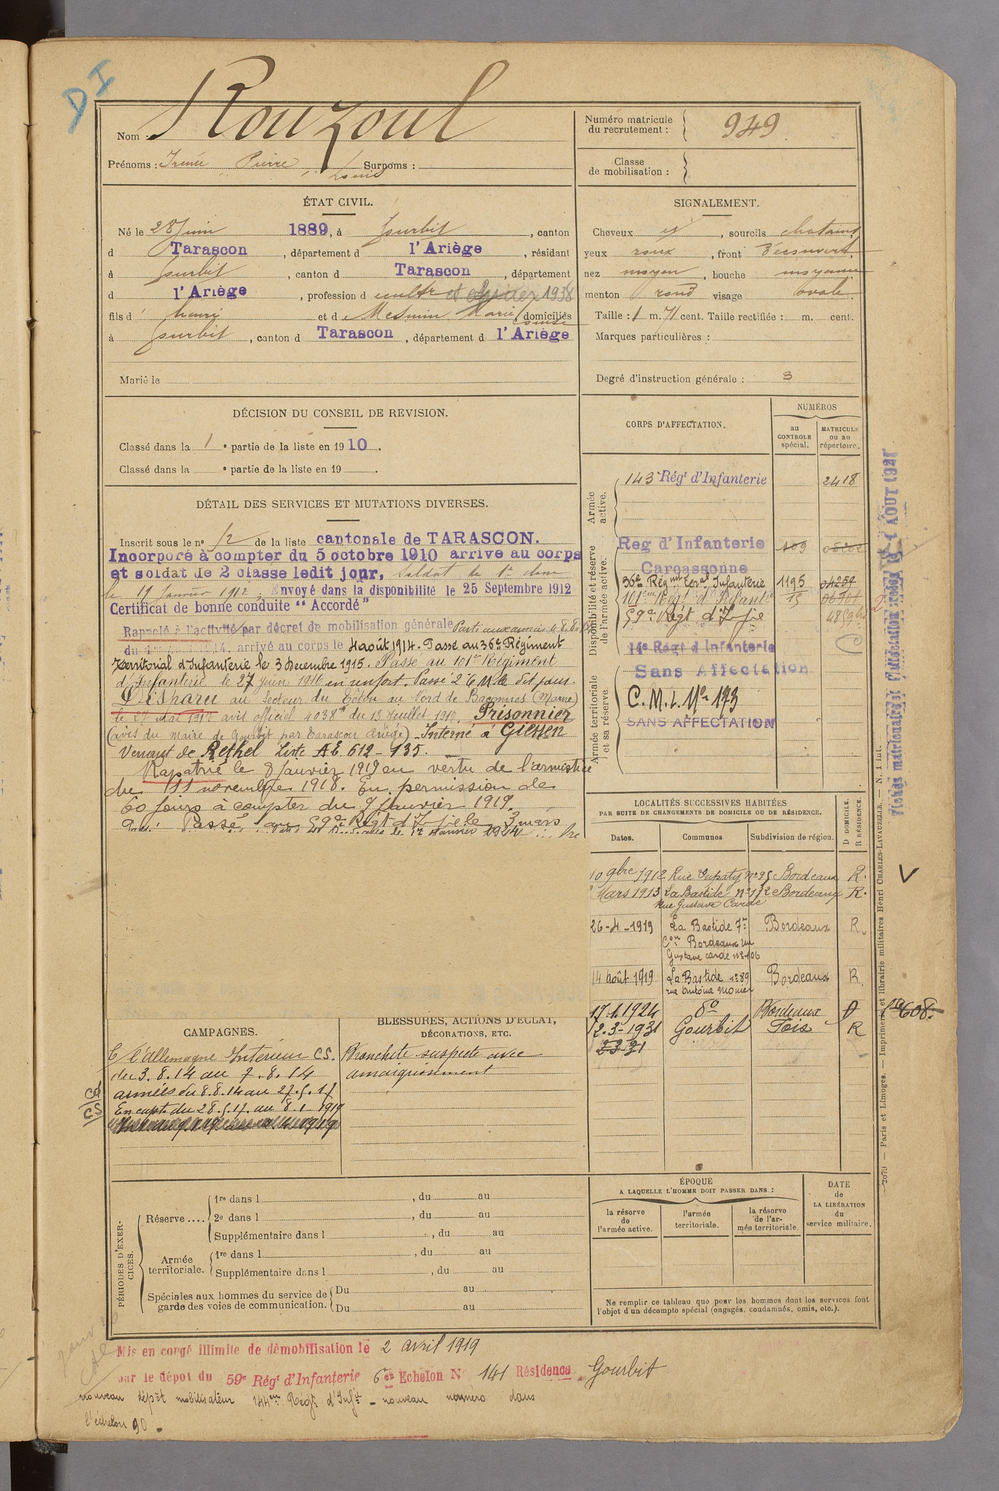 DI
Nom Rouzoul
Prénoms : Irénée Pierre Louis Surnoms :
Numéro matricule du recrutement : 949
Classe de mobilisation :
ÉTAT CIVIL.
Né le 28 Juin 1889, à Gourbit, canton
d Tarascon, département d l'Ariège, résidant
à Gourbit, canton d Tarascon, département
d l'Ariège, profession d cultr 1938
fils d henri et d Mesmin Marie Louise domiciliés
à Gourbit, canton d Tarascon, département d l'Ariège
Marié le
SIGNALEMENT.
Cheveux et, sourcils chatains
yeux roux, front découvert
nez moyen, bouche moyenne
menton rond visage ovale
Taille : 1 m. 71 cent. Taille rectifiée : m. cent.
Marques particulières :
Degré d'instruction générale : 3
DÉCISION DU CONSEIL DE REVISION.
Classé dans la 1e partie de la liste en 1910.
Classé dans la e partie de la liste en 19
DÉTAIL DES SERVICES ET MUTATIONS DIVERSES.
Inscrit sous le no 12 de la liste cantonale de TARASCON.
Incorporé à compter du 5 octobre 1910 arrivé au corps
et soldat de 2 classe ledit jour, Soldat de 1re classe
le 19 Janvier 1912. Envoyé dans la disponibilité le 25 Septembre 1912
Certificat de bonne conduite "Accordé"
Rappelé à l'activité par décret de mobilisation générale Parti aux armées le 8.8.
du 1914, arrivé au corps le 4 août 1914. Passé au 36e Régiment
territorial d'Infanterie le 3 decembre 1915. Passé au 101me Régiment
d'Infanterie le 27 juin 1916 en renfort. Passé 2e C.M. le dit jour.
Disparu au Secteur du Téton au Nord de Baconnes (Marne)
le 27 Mai 1917 avis officiel 4038 du 13 Juillet 1917. Prisonnier
(avis du Maire de Gourbit par Tarascon Ariège) Interné à Giessen
Venant de Rethel Liste A.E. 612-135.
Rapatrié le 8 Janvier 1919 en vertu de l'armistice
du 11 novembre 1918. En permission de
60 jours à compter du 9 Janvier 1919.
Passé au 59e Régt d'Infie le 3 mars
CORPS D'AFFECTATION.
NUMÉROS
au CONTROLE spécial.
MATRICULE ou au répertoire.
Armée active.
143 Régt d'Infanterie 2418
Disponibilité et réserve de l'armée active.
Reg d'Infanterie 109
Carcassonne
36e Régiment terral Infanterie 1195
101me Régt d'Infante 15
59e Régt d'Infie
14e Régt d'Infanterie
Sans Affectation
Armée territoriale et sa réserve.
C.M.I. No 173
SANS AFFECTATION
LOCALITÉS SUCCESSIVES HABITÉES
PAR SUITE DE CHANGEMENTS DE DOMICILE OU DE RÉSIDENCE.
Dates. Communes Subdivision de région. D DOMICILE. R RÉSIDENCE.
10 9bre 1912 Rue Bordeaux R.
Mars 1913 La Bastide No 112 Bordeaux R.
Rue Gustave Carde
26-4-1919 La Bastide 7e Bordeaux R.
Con Bordeaux rue
Gustave carde no 106
14 août 1919 La Bastide no 89 Bordeaux R.
rue Antoine Monier
17.1.1924 do Bordeaux D
12.3.1931 Gourbit Foix R
CAMPAGNES.
C/ l'Allemagne Intérieur C.S.
du 3.8.14 au 7.8.14
armées du 8.8.14 au 27.5.17
En capté du 28.5.17 au 8.1.1919
BLESSURES, ACTIONS D'ÉCLAT,
DÉCORATIONS, ETC.
Bronchite suspecte avec
amaigrissement
PÉRIODES D'EXERCICES.
Réserve....
1re dans l , du au
2e dans l , du au
Supplémentaire dans l , du au
Armée territoriale.
1re dans l , du au
Supplémentaire dans l , du au
Spéciales aux hommes du service de garde des voies de communication.
Du au
Du au
ÉPOQUE
A LAQUELLE L'HOMME DOIT PASSER DANS :
la réserve de l'armée active.
l'armée territoriale.
la réserve de l'armée territoriale
DATE de LA LIBÉRATION du service militaire.
Ne remplir ce tableau que pour les hommes dont les services font
l'objet d'un décompte spécial (engagés, condamnés, omis, etc.).
Mis en congé illimité de démobilisation le 2 avril 1919
par le dépot du 59e Régt d'Infanterie 6e Echelon No 141 Résidence Gourbit
nouveau dépôt mobilisateur 144me Régt d'Infie - nouveau numéro dans
l'échelon 90.
2079 — Paris et Limoges. — Imprimerie et librairie militaires Henri CHARLES-LAVAUZELLE. — N. 1 int.